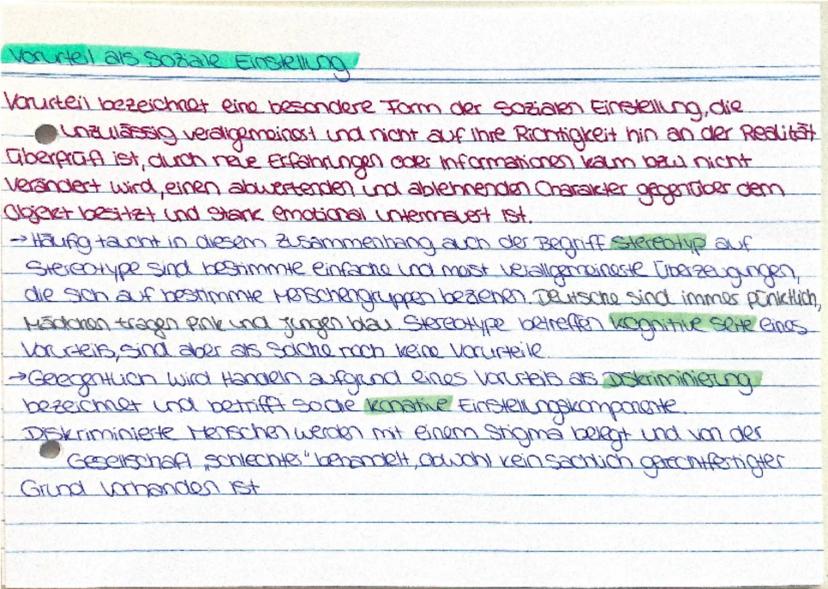 Vorurteil als Soziale Einstellung
Vorurteil bezeichnet eine besondere Form der Sozialen Einstellung, die
unzulässig verallgemeinert und nicht auf ihre Richtigkeit hin an der Realität
Überprüft ist, durch neue Erfahrungen oder Informationen kaum bzw nicht
verändert wird, einen abwertenden und ablehnenden Charakter gegenüber dem
Objekt besitzt und stark emotional untermauert ist.
→ Häufig taucht in diesem Zusammenhang auch der Begriff Stereotyp auf
Stereotype sind bestimmte einfache und meist verallgemeinerte Überzeugungen,
die sich auf bestimmte Menschengruppen beziehen. Deutsche sind immer pünktlich,
Mädchen tragen Pink und Jungen blau. Stereotype betreffen kognitive Seite eines
Vorurteils, sind aber als Solche noch keine Vorurteile.
→ Gelegentlich wird Handeln aufgrund eines Vorurteils als Diskriminierung
bezeichnet und betrifft so die konative Einstellungskomponente.
Diskriminierte Menschen werden mit einem Stigma belegt und von der
Gesellschaft „schlechter" behandelt, obwohl kein sachlich gerechtfertigter
Grund vorhanden ist